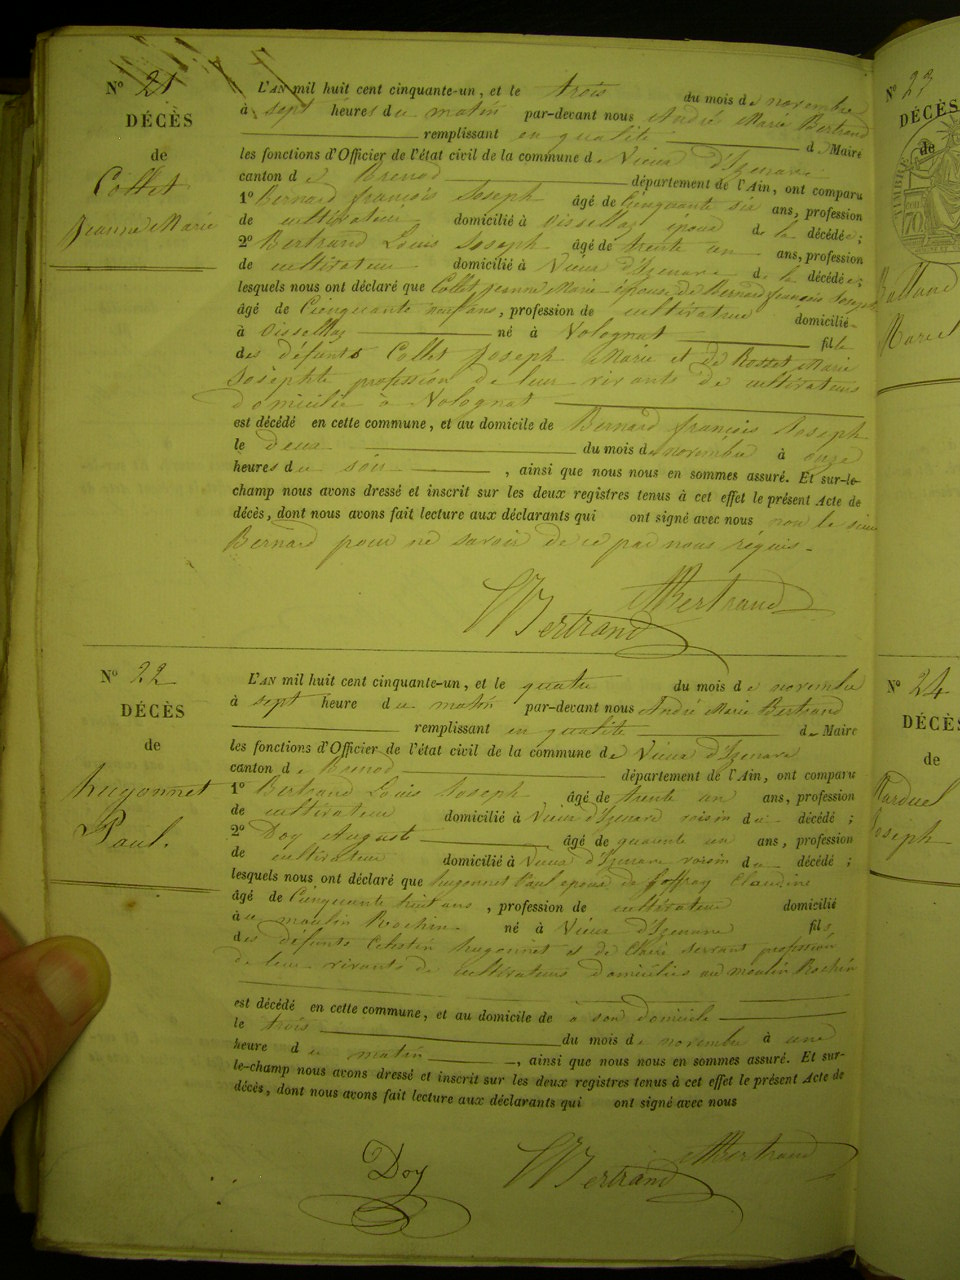 N° 21
DÉCÈS
de
Collet
Jeanne Marie
L'AN mil huit cent cinquante-un, et le trois du mois de novembre
à sept heures du matin par-devant nous André Marie Bertrand
remplissant en qualité de Maire
les fonctions d'Officier de l'état civil de la commune de Vieux d'Izenave
canton de Brenod département de l'Ain, ont comparu
1° Bernard françois Joseph âgé de Cinquante six ans, profession
de cultivateur domicilié à Oisselaz époux de la décédée ;
2° Bertrand Louis Joseph âgé de trente un ans, profession
de cultivateur domicilié à Vieux d'Izenave de la décédée ;
lesquels nous ont déclaré que Collet Jeanne Marie épouse de Bernard françois Joseph
âgé de Cinquante neuf ans, profession de cultivateur domicilié
à Oisselaz né à Volognat fille
des défunts Collet Joseph Marie et de Rosset Marie
Josephte profession de leur vivants de cultivateurs
domicilié à Volognat
est décédé en cette commune, et au domicile de Bernard françois Joseph
le deux du mois de novembre à onze
heures du soir , ainsi que nous nous en sommes assuré. Et sur-le-
champ nous avons dressé et inscrit sur les deux registres tenus à cet effet le présent Acte de
décès, dont nous avons fait lecture aux déclarants qui ont signé avec nous non le sieur
Bernard pour ne savoir de ce par nous réquis.
Bertrand
Bertrand
N° 22
DÉCÈS
de
hugonnet
Paul.
L'AN mil huit cent cinquante-un, et le quatre du mois de novembre
à sept heure du matin par-devant nous André Marie Bertrand
remplissant en qualité de Maire
les fonctions d'Officier de l'état civil de la commune de Vieux d'Izenave
canton de Brenod département de l'Ain, ont comparu
1° Bertrand Louis Joseph âgé de trente un ans, profession
de cultivateur domicilié à Vieux d'Izenave voisin du décédé ;
2° Doy Auguste âgé de quarante un ans, profession
de cultivateur domicilié à Vieux d'Izenave voisin du décédé ;
lesquels nous ont déclaré que hugonnet Paul époux de Claudine
âgé de Cinquante huit ans , profession de cultivateur domicilié
au moulin Rochin né à Vieux d'Izenave fils
des défunts hugonnet et de Claire profession
de leur vivants de cultivateurs domiciliés au moulin Rochin
est décédé en cette commune, et au domicile de à son domicile
le trois du mois de novembre à une
heure du matin , ainsi que nous nous en sommes assuré. Et sur-
le-champ nous avons dressé et inscrit sur les deux registres tenus à cet effet le présent Acte de
décès, dont nous avons fait lecture aux déclarants qui ont signé avec nous
Doy Bertrand Bertrand
N° 23
DÉCÈS
de
Marie
N° 24
DÉCÈS
de
Joseph